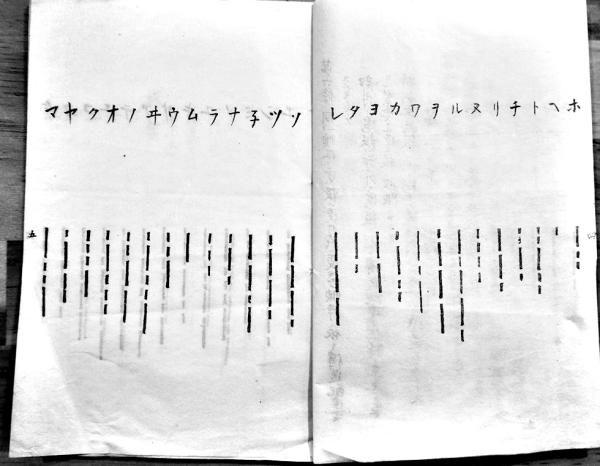 ホヘトチリヌルヲワカヨタレ
四
ソツ子ナラムウヰノオクヤマ
五